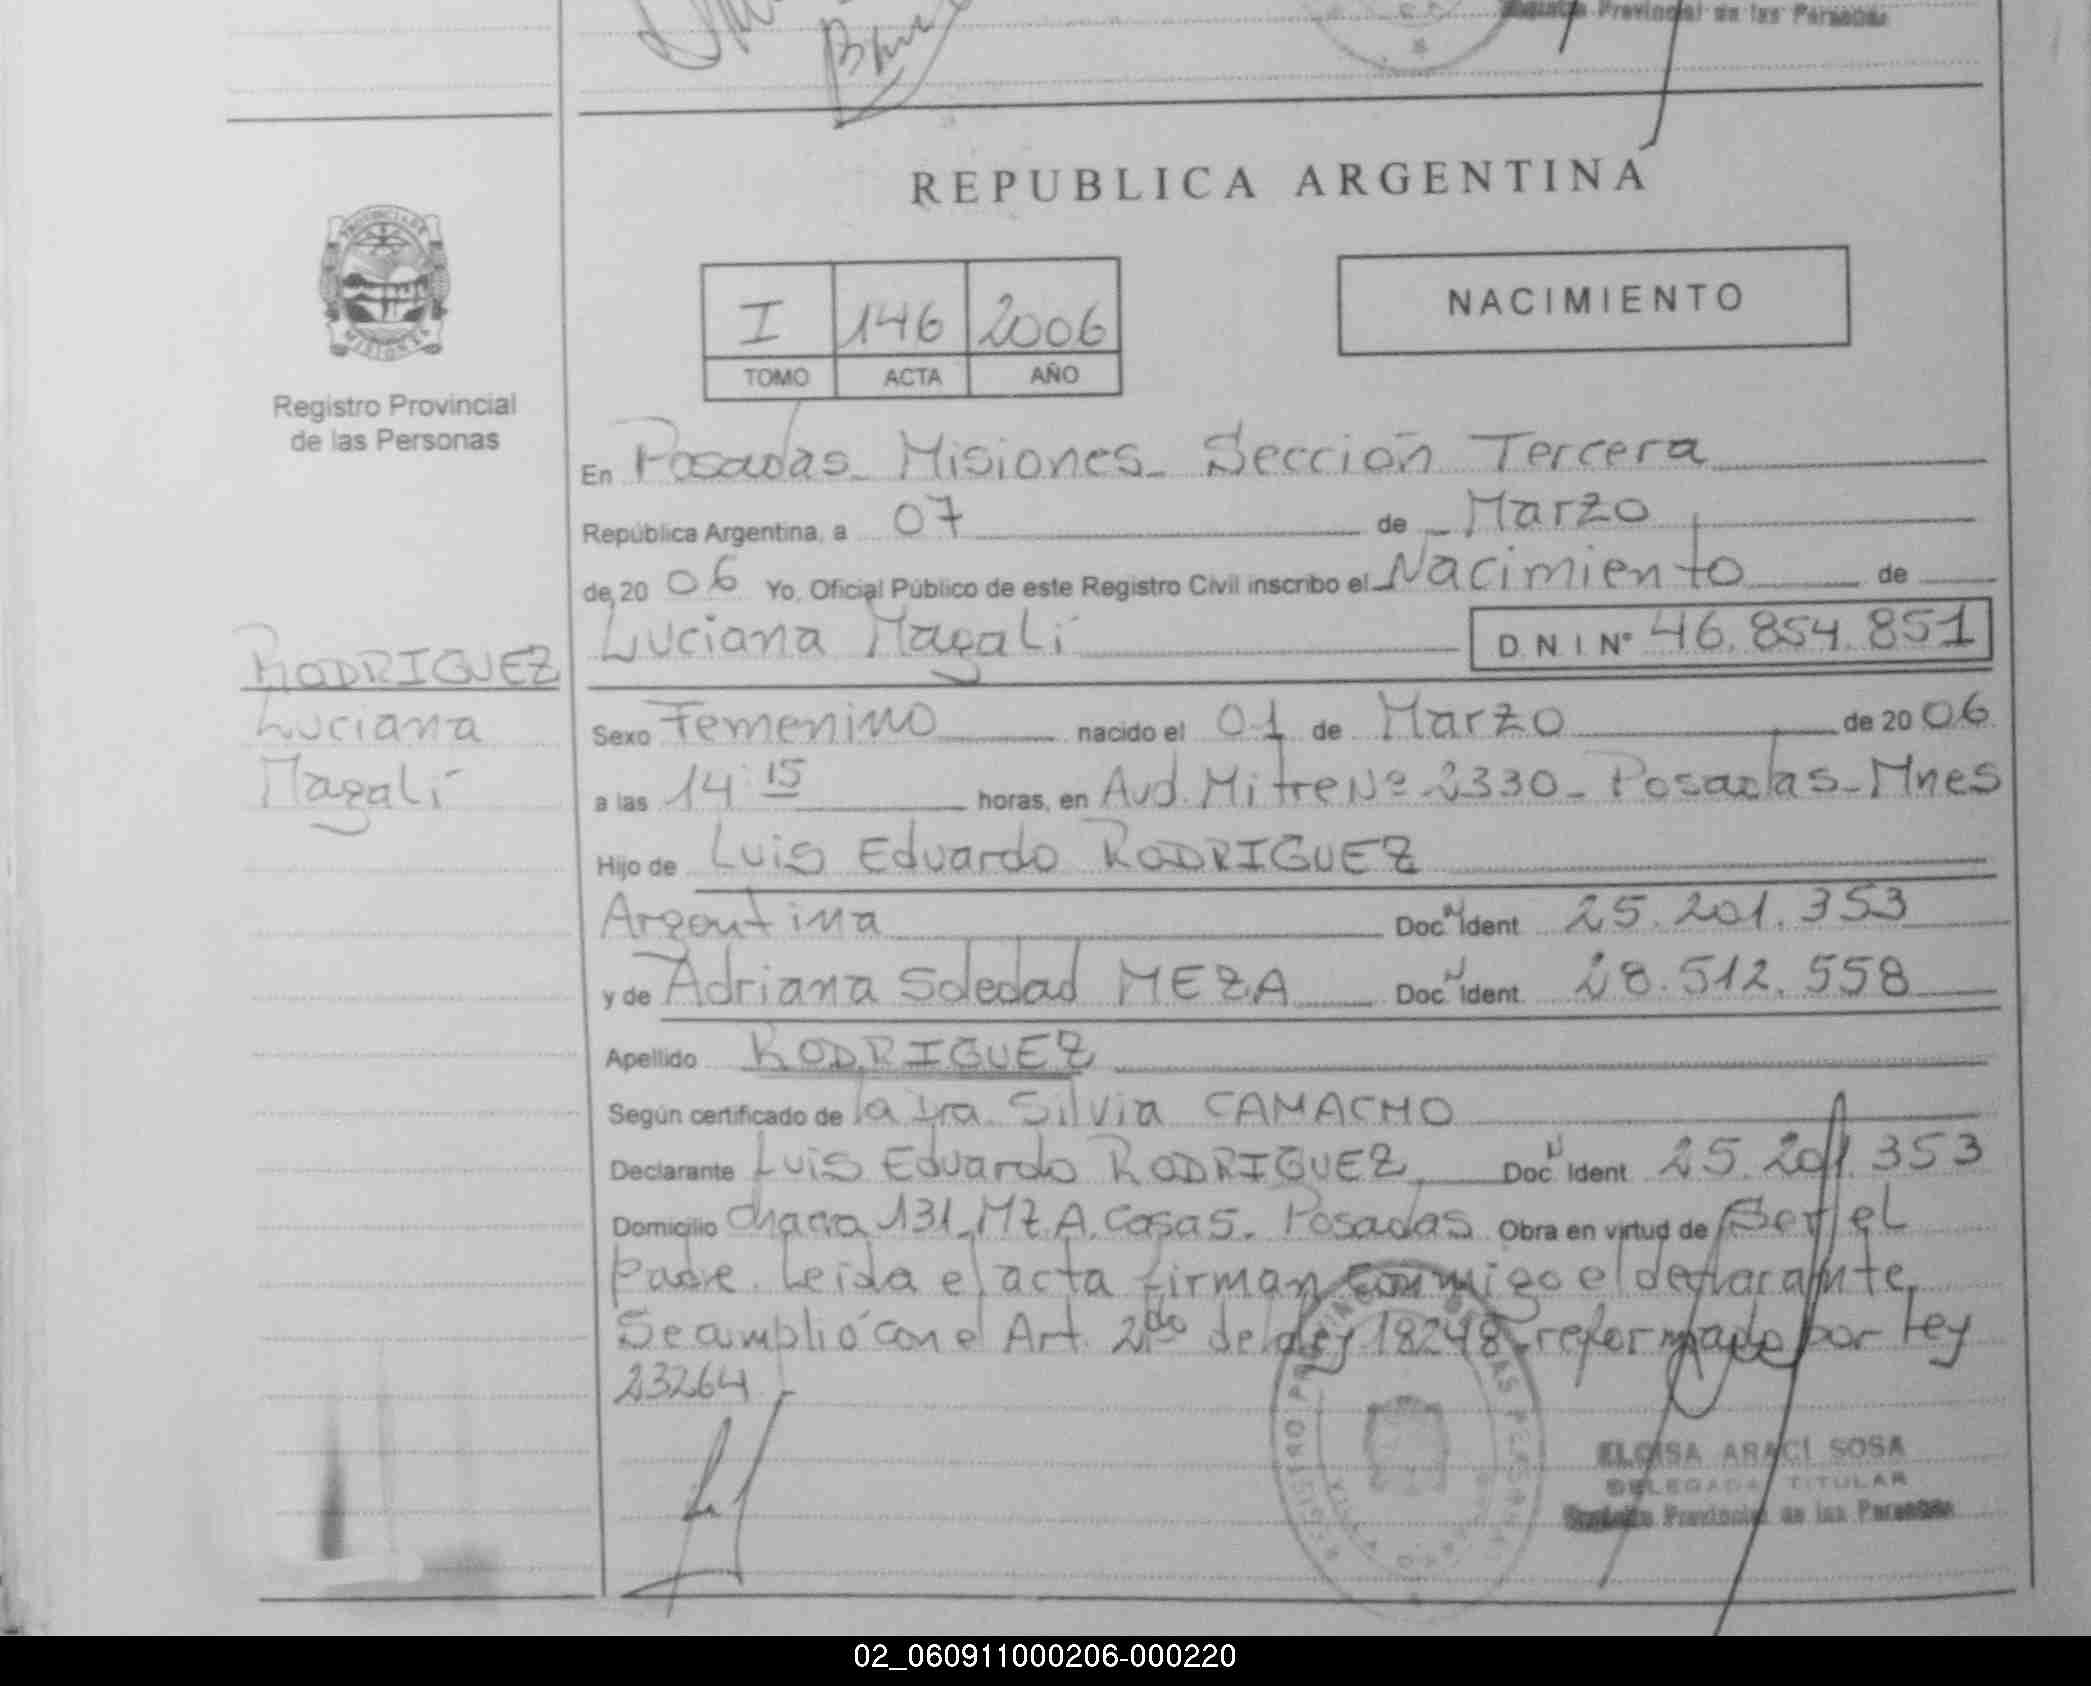 Provincial de las Personas
REPUBLICA ARGENTINA
PROVINCIA DE
MISIONES
Registro Provincial
de las Personas
I 146 2006
TOMO ACTA AÑO
NACIMIENTO
En Posadas - Misiones - Sección Tercera
República Argentina, a 07 de Marzo
de 20 06 Yo, Oficial Público de este Registro Civil inscribo el Nacimiento de
Luciana Magalí D N I Nº 46.854.851
RODRIGUEZ
Luciana
Magalí
Sexo Femenino nacido el 01 de Marzo de 20 06
a las 14:15 horas, en Avd. Mitre Nº 2330 - Posadas - Mnes
Hijo de Luis Eduardo RODRIGUEZ
Argentina Doc N Ident 25.201.353
y de Adriana Soledad MEZA Doc N Ident 28.512.558
Apellido RODRIGUEZ
Según certificado de la Silvia CAMACHO
Declarante Luis Eduardo RODRIGUEZ Doc N Ident 25.201.353
Domicilio Chacra 131 - MZ. A. Casa 5 - Posadas Obra en virtud de Ser el
Padre. Leida el acta firman conmigo el declarante.
Se cumplió con el Art. 2do de la Ley 18248 - reformado por Ley
23264 -
ELOISA ARACÍ SOSA
DELEGADA TITULAR
Provincial de las Personas
02_060911000206-000220